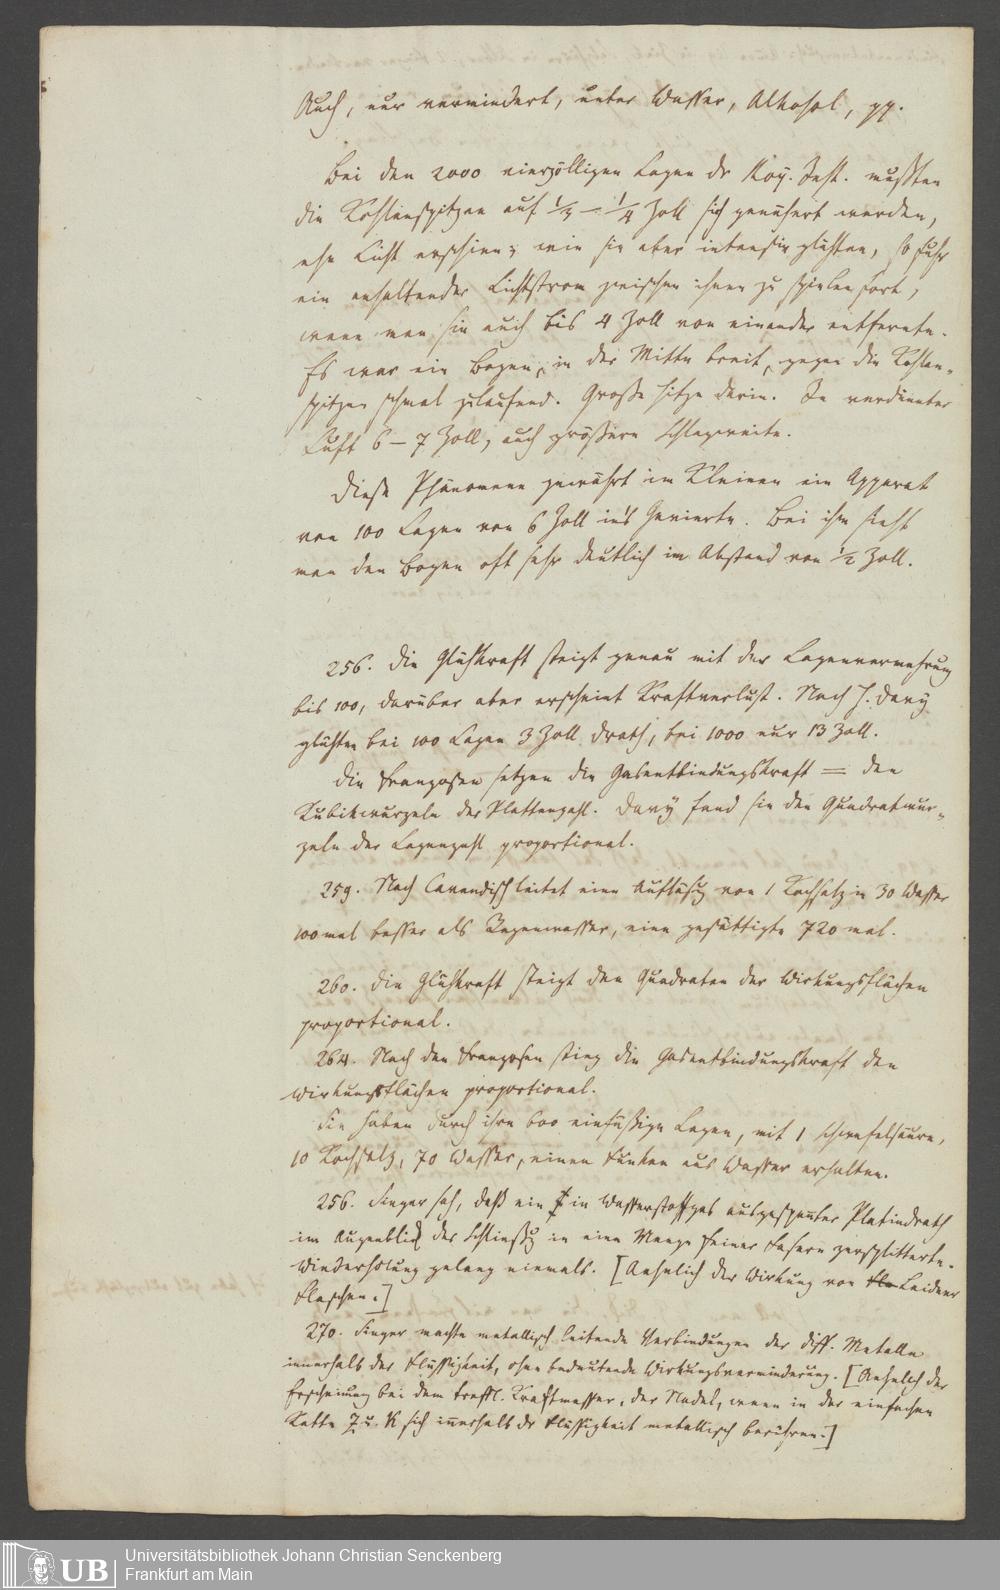 Auch, nur vermindert, unter Wasser, Alkohol, pp.
Bei den 2000 vierzölligen Lagen dr Roy. Inst. mußten
die Kohlenspitzen auf 1/3 — 1/4 Zoll sich genähert werden,
ehe Licht erschien; wie sie aber intensiv glühten, so fuhr
ein anhaltender Lichtstrom zwischen ihnen zu spielen fort,
wenn man sie auch bis 4 Zoll von einander entfernte.
Es war ein Bogen, in der Mitte breit, gegen die Kohlen-
spitzen schmal zulaufend. Große Hitze darin. In verdünnter
Luft 6 – 7 Zoll, auch größere Schlagweite.
Diese Phänomene gewährt im Kleinen ein Apparat
von 100 Lagen von 6 Zoll in's Gevierte. Bei ihm sieht
man den Bogen oft sehr deutlich im Abstand von 1/2 Zoll.
256. Die Glühkraft steigt genau mit der Lagenvermehrung
bis 100, darüber aber erscheint Kraftverlust. Nach H. Davÿ
glühten bei 100 Lagen 3 Zoll Drath, bei 1000 nur 13 Zoll.
Die Franzosen setzen die Gasentbindungskraft = den
Kubikwurzeln der Plattenzahl. Davÿ fand sie den Quadratwur-
zeln der Lagenzahl proportional.
259. Nach Cavendisch leitet eine Auflösug von 1 Kochsalz in 30 Wasser
100 mal besser als Regenwasser, eine gesättigte 720 mal.
260. Die Glühkraft steigt den Quadraten der Wirkungsflächen
proportional.
264. Nach den Franzosen stieg die Gasentbindungskraft den
Wirkungsflächen proportional.
Sie haben durch ihre 600 einfüßige Lagen, mit 1 Schwefelsäure,
10 Kochsalz, 70 Wasser, einen Funken aus Wasser erhalten.
256. Singer sah, daß ein in Wasserstoffgas ausgespannter Platindrath
im Augenblick der Schließug in eine Menge feiner Fasern zersplitterte.
Wiederholung gelang niemals. [Aehnlich der Wirkung von Fla Leidner
Flaschen.]
270. Singer machte metallisch leitende Verbindungen der diff. Metalle
innerhalb der Flüssigkeit, ohne bedeutende Wirkungsverminderung. [Aehnlich der
Erscheinung bei dem treffl. Kraftmesser, der Nadel, wenn in der einfachen
Kette Z u. K sich innerhalb dr Flüssigkeit metallisch berühren.]
Universitätsbibliothek Johann Christian Senckenberg
Frankfurt am Main
UB